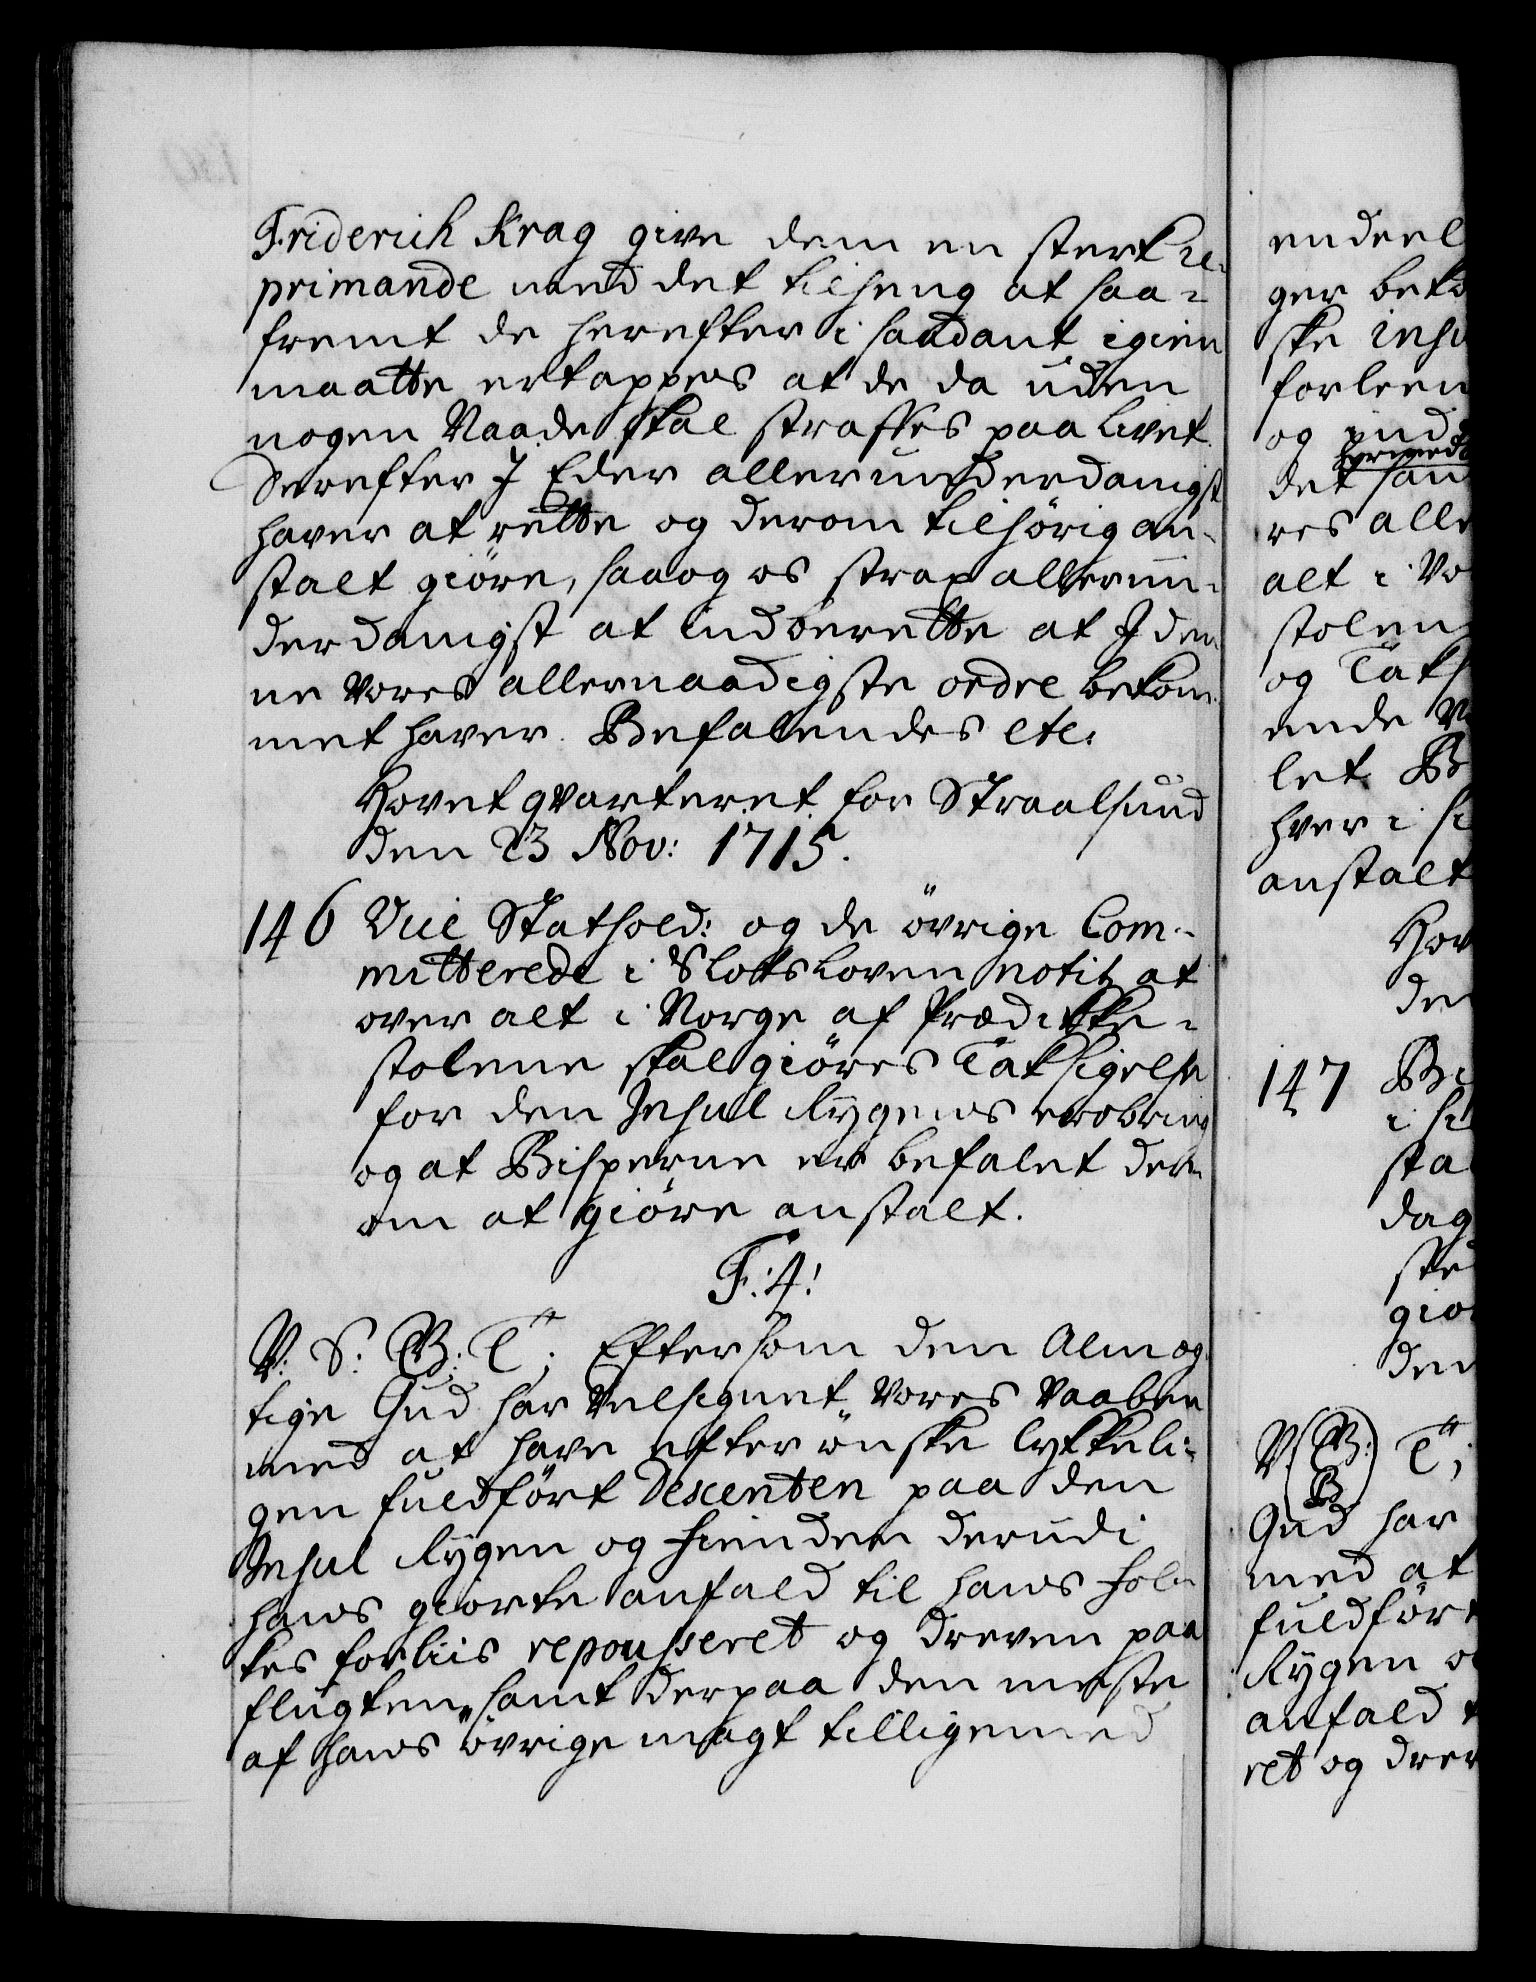 Friderich Krag give dem en sterk re-
primande med det tilheng at saa-
fremt de herefter i saadant igien
maatte ertappes at de da uden
nogen Naade skal straffes paa livet.
Derefter I Eder allerunderdanigst
haver at rette og derom tilhörig an-
stalt giöre, saa og os strax allerun-
derdanigst at indberette at I den-
ne Vores allernaadigste ordre bekom-
met haver. Befalendes etc.
Hovetqvarteret for Straalsund
den 23 Nov: 1715.
146 Vice Stathold: og de övrige Com-
mitterede i Slotsloven notif: at
over alt i Norge af Prædikke-
stolene skal giöres Taksigelse
for den Insul Rygens erobring
og at Bisperne er befalet der-
om at giöre anstalt.
F: 4:
V: S: G: T; Eftersom den Almæg-
tige Gud har Velsignet Vores Vaaben
med at have efter önske lykkeli-
gen fuldfört Descenten paa den
Insul Rygen og fienden derudi
hans giorte anfald til hans fol-
kes forliis repousseret og dreven paa
flugten, samt derpaa den meste
af hans övrige magt tilligemed
endeel
ger beko
ske Insu
forleen
og ind
hermed
det san
res alle
alt i Vo
stolen
og Taks
ende V
let B
hver i si
anstalt
Hov
den
147 Bi
i si
sta
dag
ske
giö
den
V: G: T;
B
Gud har
med at
fuldfört
Rygen o
anfald t
ret og drev